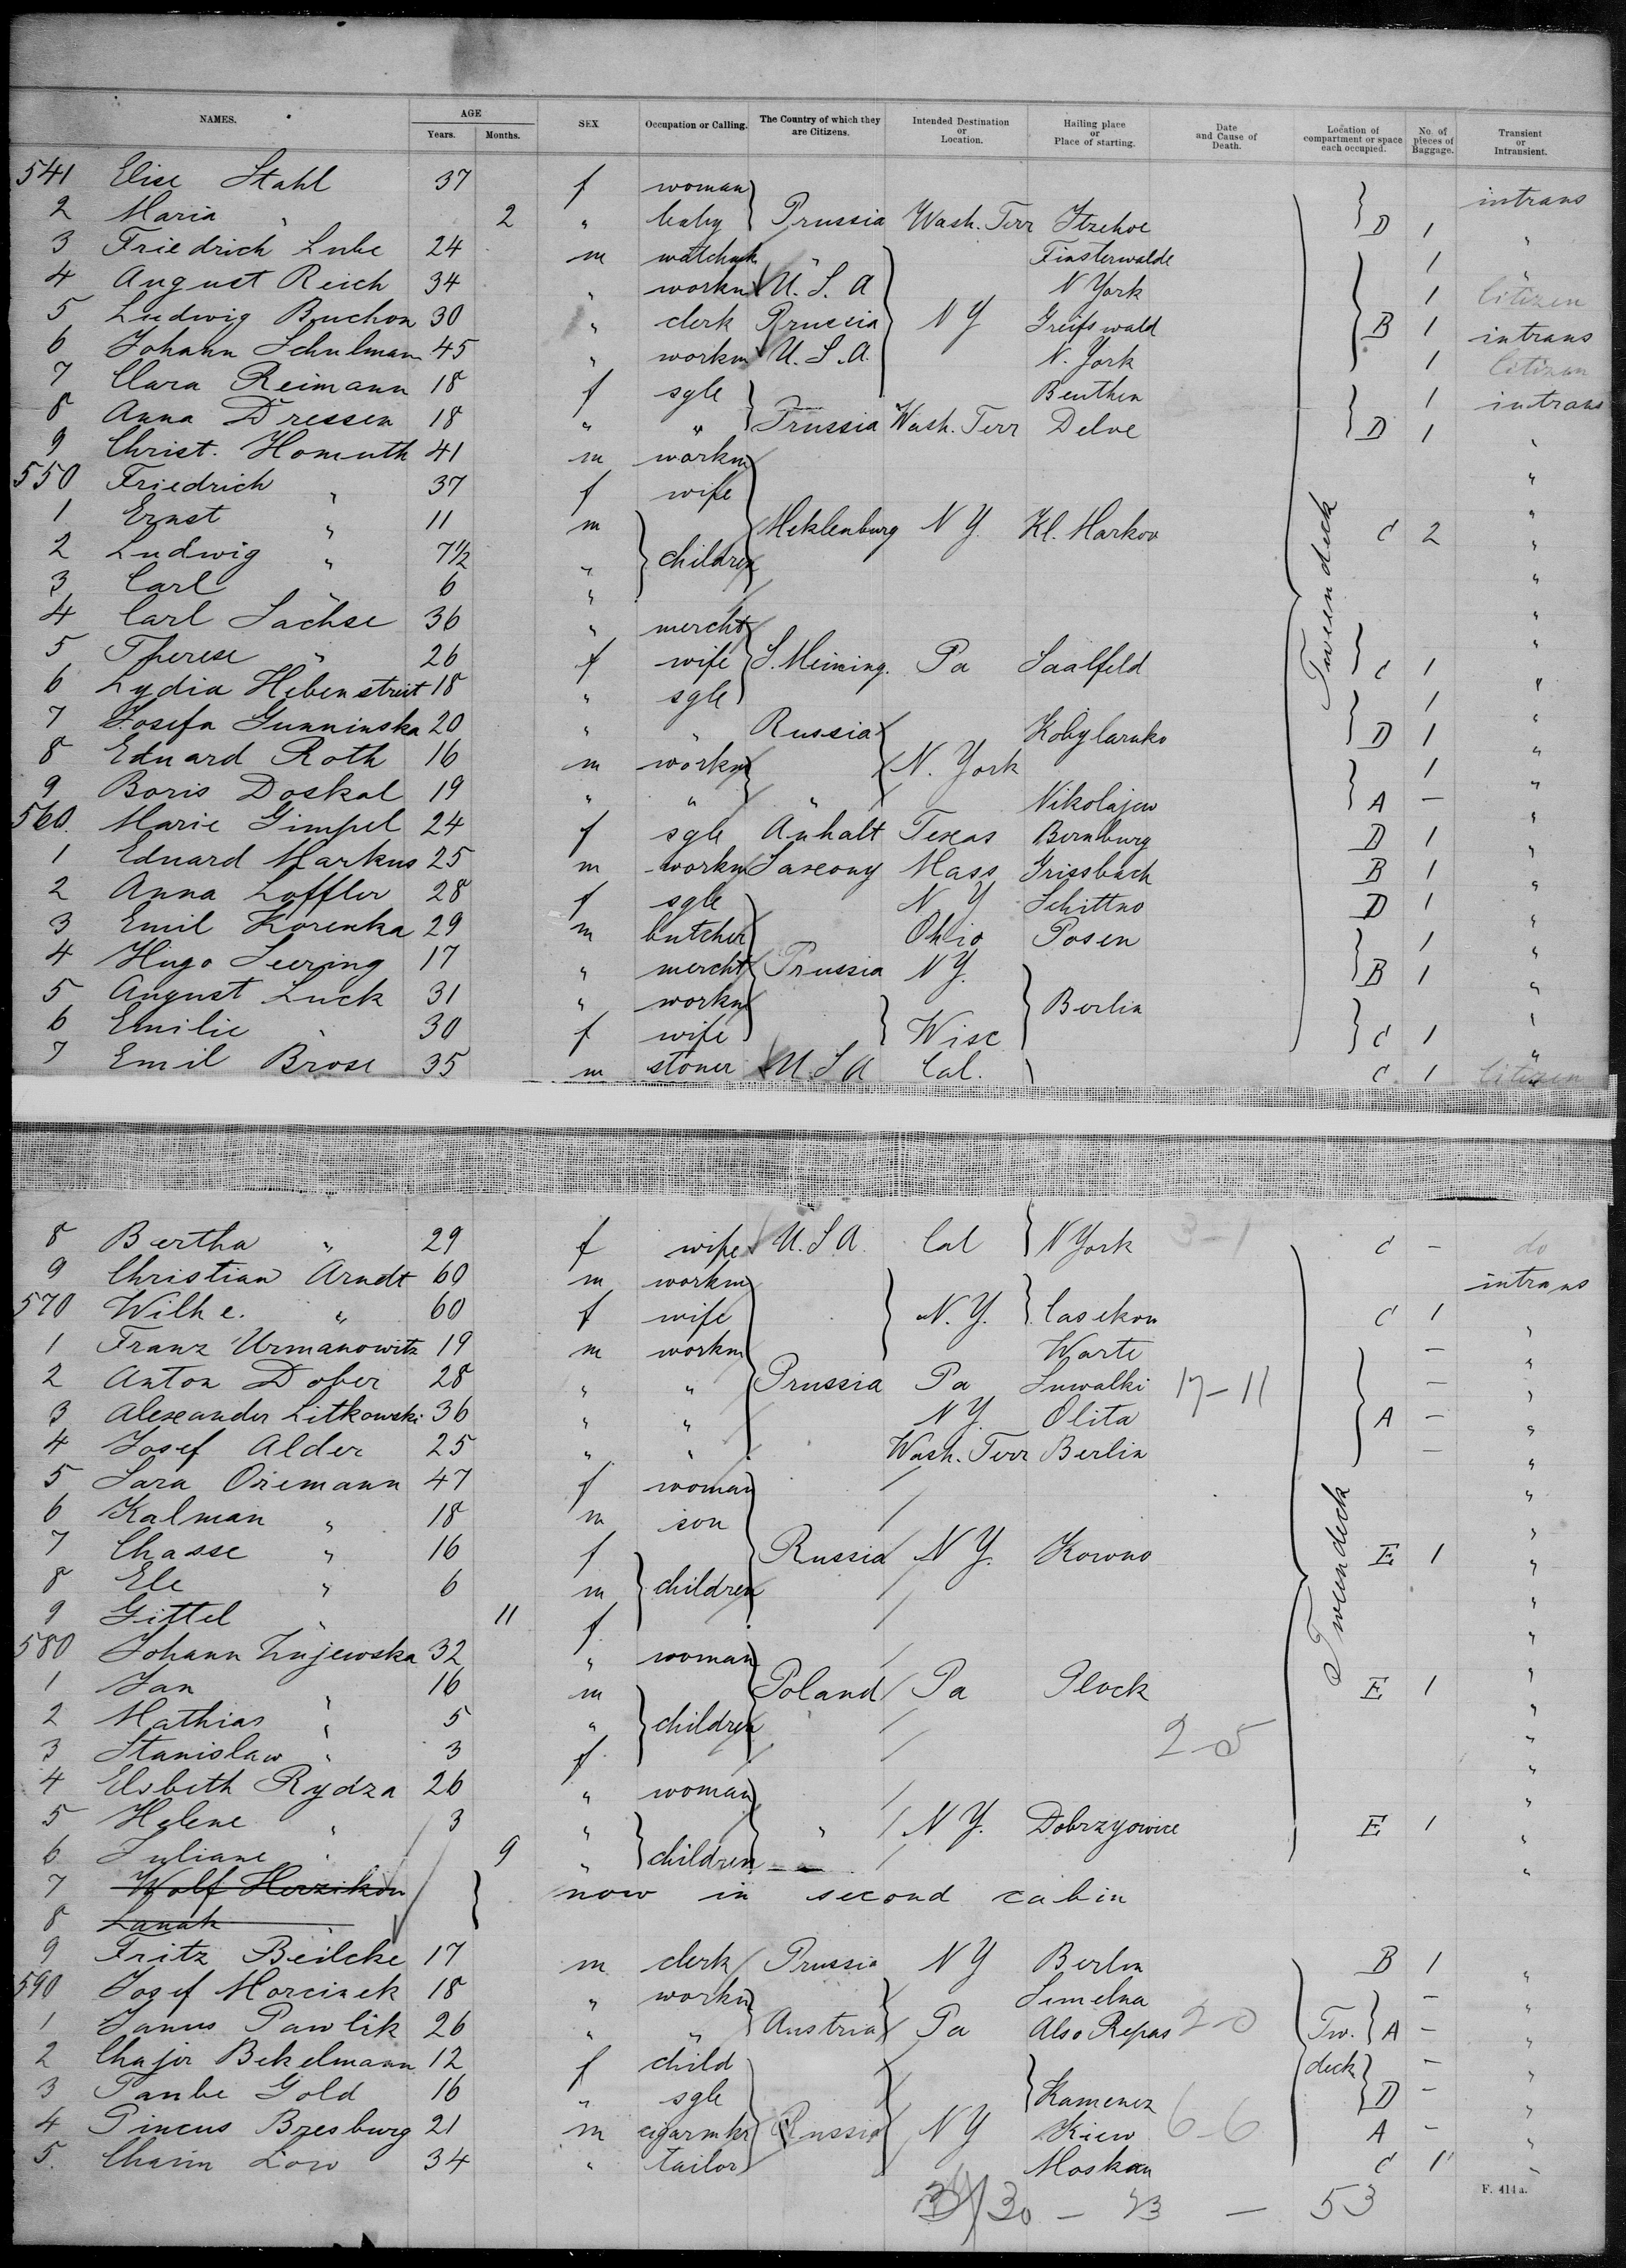 NAMES. AGE SEX Occupation or Calling. The Country of which they are Citizens. Intended Destination or Location. Hailing place or Place of starting. Date and Cause of Death. Location of compartment or space each occupied. No. of pieces of Baggage. Transient or Intransient.
Years. Months.
541 Elise Stahl 37 f woman intrans
2 Maria " 2 " baby Prussia Wash. Terr Itzehoe D 1 "
3 Friedrich Lube 24 m watchmk " Finsterwalde 1 "
4 August Reich 34 " workm U. S. A N York 1 Citizen
5 Ludwig Buchon 30 " clerk Prussia N Y Greifswald B 1 intrans
6 Johann Schulmann 45 " workm U. S. A. N. York 1 Citizen
7 Clara Reimann 18 f sgle Beuthen 1 intrans
8 Anna Dressen 18 " " Prussia Wash. Terr Delve D 1 "
9 Christ. Homuth 41 m workm "
550 Friedrich " 37 f wife "
1 Ernst " 11 m Meklenburg N Y. Kl. Markow C 2 "
2 Ludwig " 7 1/2 " children "
3 Carl " 6 " "
4 Carl Sachse 36 " mercht "
5 Therese " 26 f wife S. Meining. Pa Saalfeld C 1 "
6 Lydia Hebenstreit 18 " sgle 1 "
7 Josefa Gunninska 20 " " Russia Kobylarnko D 1 "
8 Eduard Roth 16 m workm N. York 1 "
9 Boris Doskal 19 " " " Nikolajew A — "
560. Marie Gimpel 24 f sgle Anhalt Texas Bernburg D 1 "
1 Eduard Markus 25 m workm Saxony Mass Grissbach B 1 "
2 Anna Loffler 28 f sgle N Y Schittno D 1 "
3 Emil Korenka 29 m butcher Ohio Posen 1 "
4 Hugo Seering 17 " mercht Prussia N Y. B 1 "
5 August Luck 31 " workm Berlin "
6 Emilie " 30 f wife Wisc C 1 "
7 Emil Brose 35 m stoner U S A Cal. C 1 Citizen
Tweendeck
8 Bertha " 29 f wife U. S A. Cal N York 3-1 C — do
9 Christian Arndt 60 m workm intrans
570 Wilhe. " 60 f wife N. Y. Casekow C 1 "
1 Franz Urmanowitz 19 m workm Warte — "
2 Anton Dober 28 " " Prussia Pa Suwalki 17-11 — "
3 Alexander Litkowski 36 " " N Y. Olita A — "
4 Josef Alder 25 " " Wash. Terr Berlin — "
5 Sara Oremann 47 f woman "
6 Kalman " 18 m son "
7 Chasse " 16 f Russia N Y. Kowno E 1 "
8 Ele " 6 m children "
9 Gittel " 11 f "
580 Johann Zujewska 32 " woman "
1 Jan " 16 m Poland Pa Plock E 1 "
2 Mathias " 5 " children "
3 Stanislaw " 3 f 2-5 "
4 Elsbeth Rydza 26 " woman "
5 Helene " 3 " " N Y. Dobrzyowice E 1 "
6 Juliane " 9 " children "
7 Wolf Herzikon now in second cabin
8 Lanak "
Tweendeck
9 Fritz Beilcke 17 m clerk Prussia N Y Berlin B 1 "
590 Josef Morcinek 18 " workm Semelna — "
1 Janus Pawlik 26 " " Austria Pa Also Repas 2-0 Tw. A — "
2 Chajir Bekelmann 12 f child deck — "
3 Taube Gold 16 " sgle Kamenez D — "
4 Pincus Bresburg 21 m cigarmkr Russia N Y Kiew 6-6 A — "
5. Chaim Low 34 " tailor Moskau C 1 "
30 — 23 — 53
F. 414a.